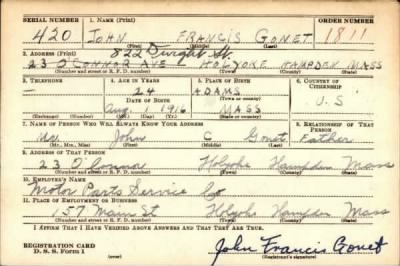 SERIAL NUMBER 1. NAME (Print) ORDER NUMBER
420 JOHN FRANCIS GONET 1811
(First) (Middle) (Last)
2. ADDRESS (Print) 822 Dwight St.
23 O'CONNOR AVE HOLYOKE HAMPDEN MASS
(Number and street or R. F. D. number) (Town) (County) (State)
3. TELEPHONE 4. AGE IN YEARS 5. PLACE OF BIRTH 6. COUNTRY OF CITIZENSHIP
— 24 ADAMS
DATE OF BIRTH (Town or county) U.S
Aug 1 1916 MASS
(Exchange) (Number) (Mo.) (Day) (Yr.) (State or country)
7. NAME OF PERSON WHO WILL ALWAYS KNOW YOUR ADDRESS 8. RELATIONSHIP OF THAT PERSON
Mr. John C Gonet Father
(Mr., Mrs., Miss) (First) (Middle) (Last)
9. ADDRESS OF THAT PERSON
23 O'Connor Holyoke Hampden Mass
(Number and street or R. F. D. number) (Town) (County) (State)
10. EMPLOYER'S NAME
Motor Parts Service Co
11. PLACE OF EMPLOYMENT OR BUSINESS
157 Main St Holyoke Hampden Mass
(Number and street or R. F. D. number) (Town) (County) (State)
I AFFIRM THAT I HAVE VERIFIED ABOVE ANSWERS AND THAT THEY ARE TRUE.
REGISTRATION CARD
D. S. S. Form 1 John Francis Gonet
(Registrant's signature)